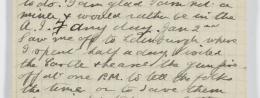 to do. I am glad I am not a
miner & would rather be in the
A.I.F any day. Jan 2nd
Saw me off to Edinburgh where
I spent half a day visited
the Castle & heard the gun fire
off at one P.M. to tell the folks
the time or to save them